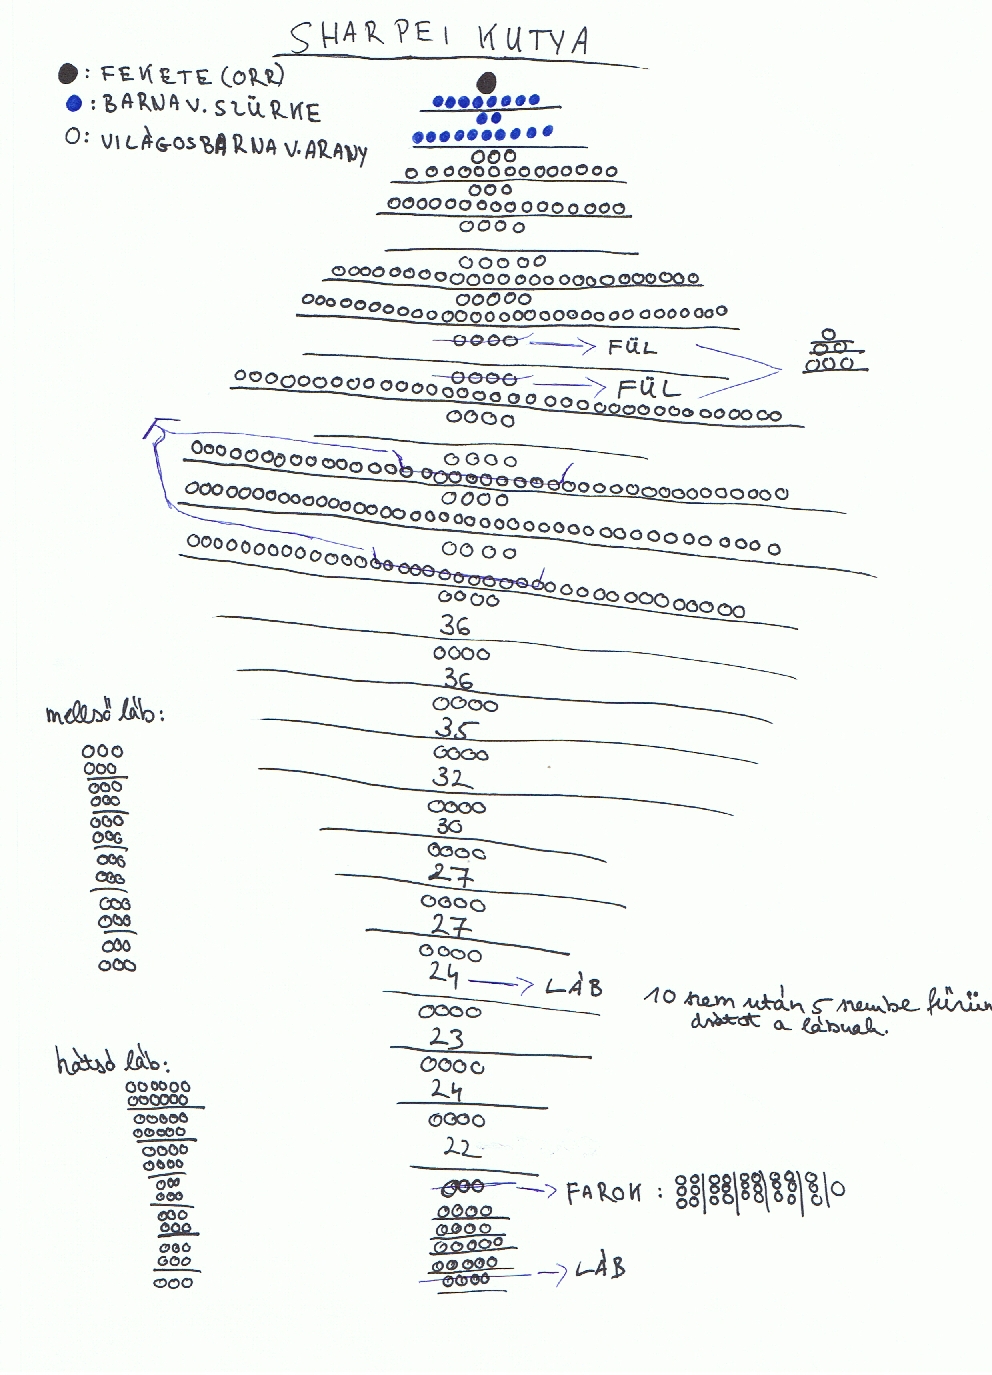 SHARPEI KUTYA
●: FEKETE (ORR)
●: BARNA V. SZÜRKE
O: VILÁGOSBARNA V. ARANY
FÜL
FÜL
36
36
mellső láb:
35
32
30
27
27
24 → LÁB
10 szem után 5 szembe fűzün
drótot a lábnak.
23
hátsó láb:
24
22
FAROK :
LÁB